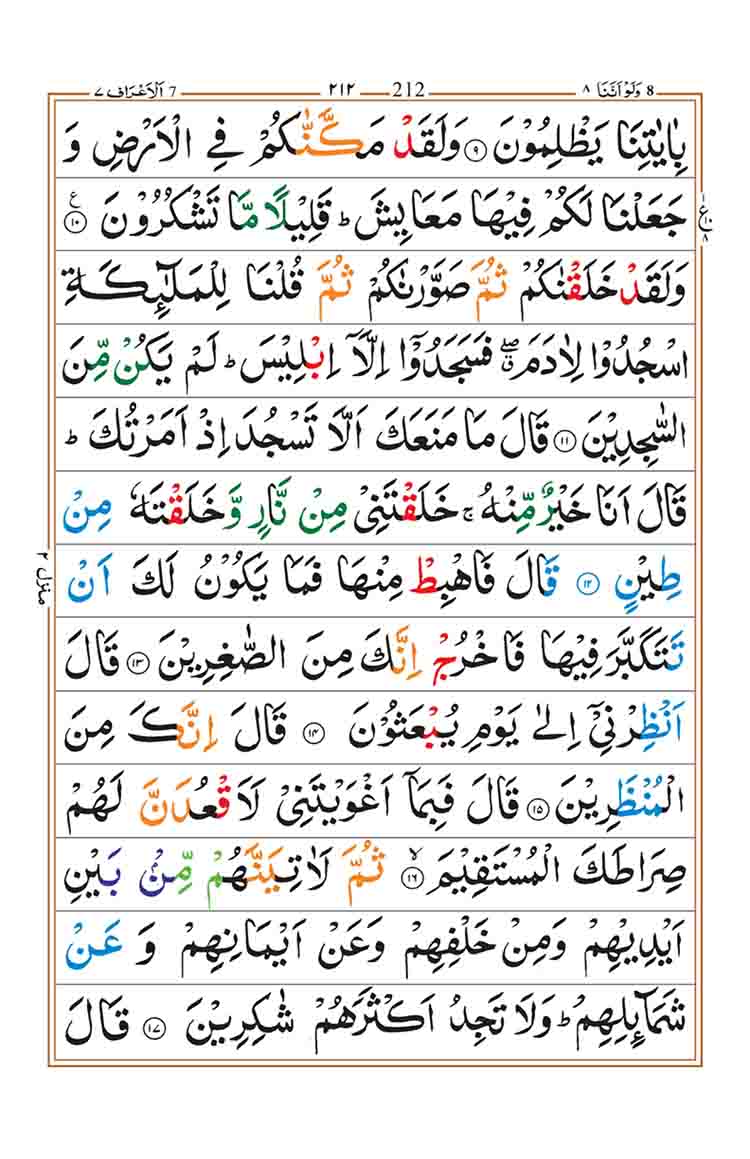 7 اَلۡاَعۡرَاف ٧ ٢١٢ 212 8 وَلَوۡ اَنَّنَا ٨
بِاٰيٰتِنَا يَظۡلِمُوۡنَ ۝٩ وَلَقَدۡ مَكَّنّٰكُمۡ فِى الۡاَرۡضِ وَ
جَعَلۡنَا لَكُمۡ فِيۡهَا مَعَايِشَ ؕ قَلِيۡلًا مَّا تَشۡكُرُوۡنَ ۝١٠ ع
وَلَقَدۡ خَلَقۡنٰكُمۡ ثُمَّ صَوَّرۡنٰكُمۡ ثُمَّ قُلۡنَا لِلۡمَلٰٓٮِٕكَةِ
اسۡجُدُوۡا لِاٰدَمَ ۖ فَسَجَدُوۡۤا اِلَّاۤ اِبۡلِيۡسَ ؕ لَمۡ يَكُنۡ مِّنَ
السّٰجِدِيۡنَ ۝١١ قَالَ مَا مَنَعَكَ اَلَّا تَسۡجُدَ اِذۡ اَمَرۡتُكَ ؕ
قَالَ اَنَا خَيۡرٌ مِّنۡهُ ۚ خَلَقۡتَنِىۡ مِنۡ نَّارٍ وَّخَلَقۡتَهٗ مِنۡ
طِيۡنٍ ۝١٢ قَالَ فَاهۡبِطۡ مِنۡهَا فَمَا يَكُوۡنُ لَكَ اَنۡ
تَتَكَبَّرَ فِيۡهَا فَاخۡرُجۡ اِنَّكَ مِنَ الصّٰغِرِيۡنَ ۝١٣ قَالَ
اَنۡظِرۡنِىۡۤ اِلٰى يَوۡمِ يُبۡعَثُوۡنَ ۝١٤ قَالَ اِنَّكَ مِنَ
الۡمُنۡظَرِيۡنَ ۝١٥ قَالَ فَبِمَاۤ اَغۡوَيۡتَنِىۡ لَاَقۡعُدَنَّ لَهُمۡ
صِرَاطَكَ الۡمُسۡتَقِيۡمَ ۙ‏ ۝١٦ ثُمَّ لَاٰتِيَنَّهُمۡ مِّنۡۢ بَيۡنِ
اَيۡدِيۡهِمۡ وَمِنۡ خَلۡفِهِمۡ وَعَنۡ اَيۡمَانِهِمۡ وَ عَنۡ
شَمَآٮِٕلِهِمۡ‌ؕ وَلَا تَجِدُ اَكۡثَرَهُمۡ شٰكِرِيۡنَ ۝١٧ قَالَ
منزل ٢